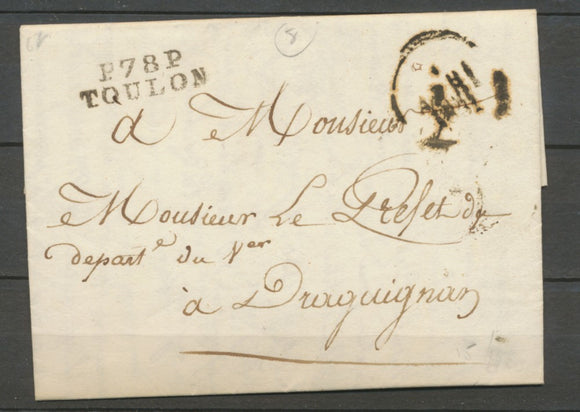 8
P78P
TOULON
a Monsieur
Monsieur Le Prefet du
depart.e du Var
à Draguignan